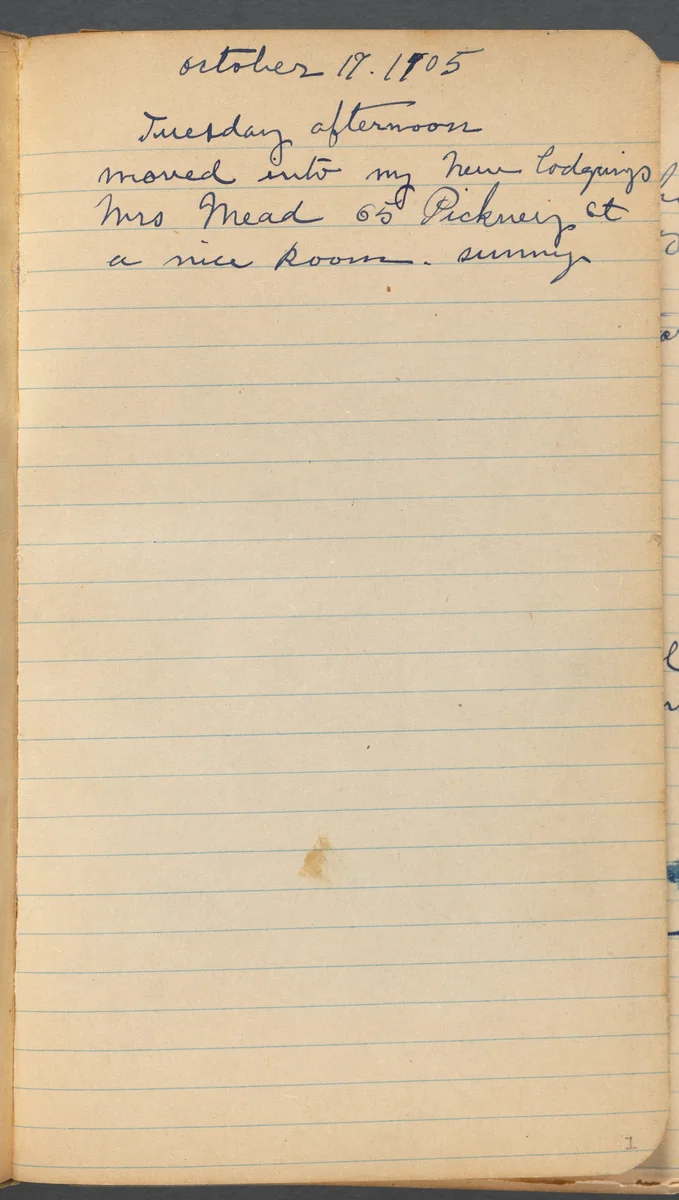 October 17. 1905
Tuesday afternoon
moved into my new lodgings
Mrs Mead 65 Pickney st
a nice Room. sunny
1